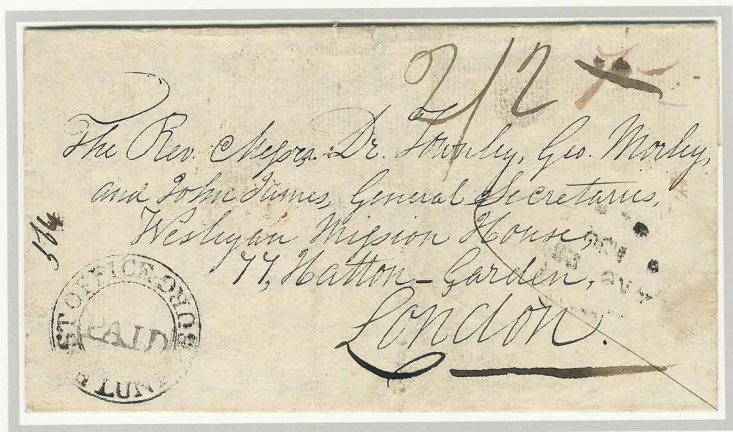 2/2
The Rev. Messrs. Dr. Townley, Geo. Morley,
and John James, General Secretaries,
Wesleyan Mission House,
77, Hatton-Garden,
London.
POST OFFICE
PAID